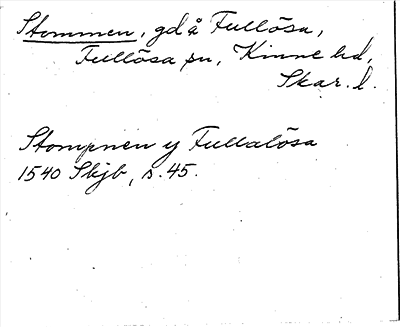 Stommen, gd å Fullösa,
Fullösa sn, Kinne hd,
Skar. l.
Stompnen y Fullalösa
1540 Skjb, s. 45.